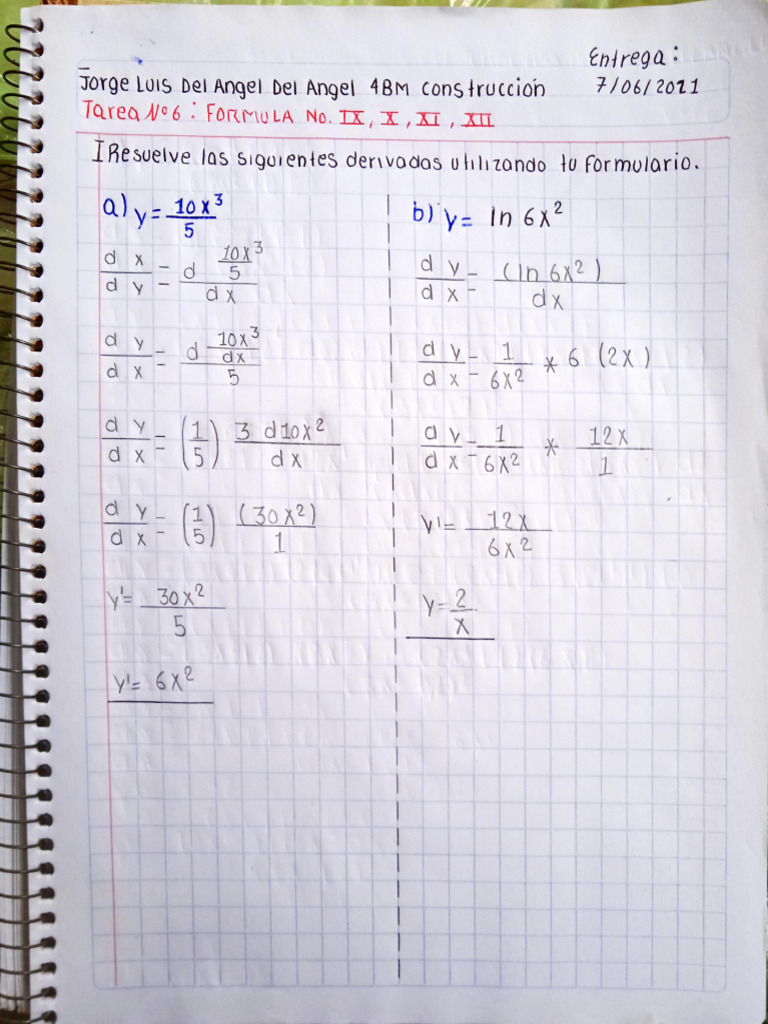 Entrega:
Jorge Luis Del Angel Del Angel 4BM Construcción 7/06/2021
Tarea N°6: FORMULA No. IX, X, XI, XII
I Resuelve las siguientes derivadas utilizando tu formulario.
a) y = 10x³/5
dx/dy = d 10x³/5 / dx
dy/dx = d 10x³/dx / 5
dy/dx = (1/5) 3 d10x²/dx
dy/dx = (1/5) (30x²)/1
y' = 30x²/5
y' = 6x²
b) y = ln 6x²
dy/dx = (ln 6x²)/dx
dy/dx = 1/6x² * 6 (2x)
dy/dx = 1/6x² * 12x/1
y' = 12x/6x²
y = 2/x